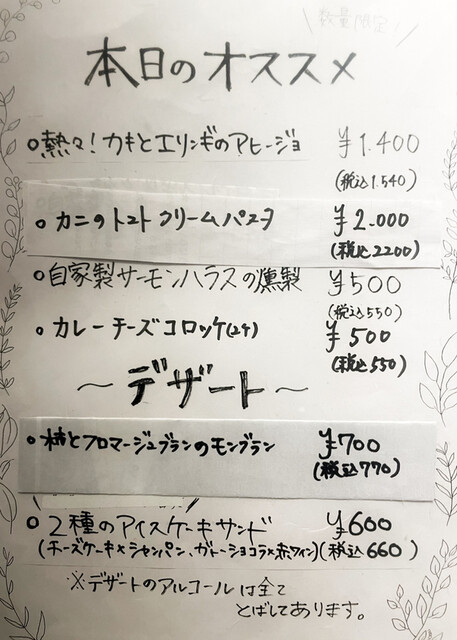 数量限定
本日のオススメ
○熱々！カキとエリンギのアヒージョ ¥1.400
(税込1.540)
○カニのトマトクリームパスタ ¥2.000
(税込2200)
○自家製サーモンハラスの燻製 ¥500
(税込550)
○カレーチーズコロッケ(2ケ) ¥500
(税込550)
～デザート～
○柿とフロマージュブランのモンブラン ¥700
(税込770)
○2種のアイスケーキサンド ¥600
(チーズケーキ×シャンパン、ガトーショコラ×赤ワイン)(税込660)
※デザートのアルコールは全て
とばしてあります。